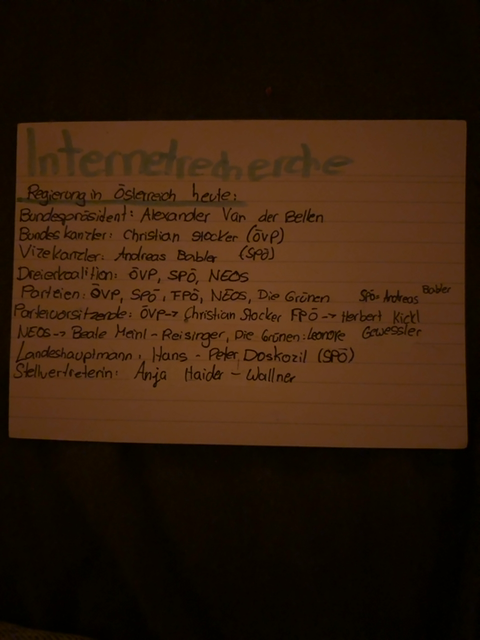 Internetrecherche
Regierung in Österreich heute:
Bundespräsident: Alexander Van der Bellen
Bundeskanzler: Christian Stocker (ÖVP)
Vizekanzler: Andreas Babler (SPÖ)
Dreierkoalition: ÖVP, SPÖ, NEOS
Parteien: ÖVP, SPÖ, FPÖ, NEOS, Die Grünen SPÖ: Andreas Babler
Parteivorsitzende: ÖVP-> Christian Stocker FPÖ -> Herbert Kickl
NEOS-> Beate Meinl-Reisinger, Die Grünen: Leonore Gewessler
Landeshauptmann: Hans-Peter Doskozil (SPÖ)
Stellvertreterin: Anja Haider-Wallner